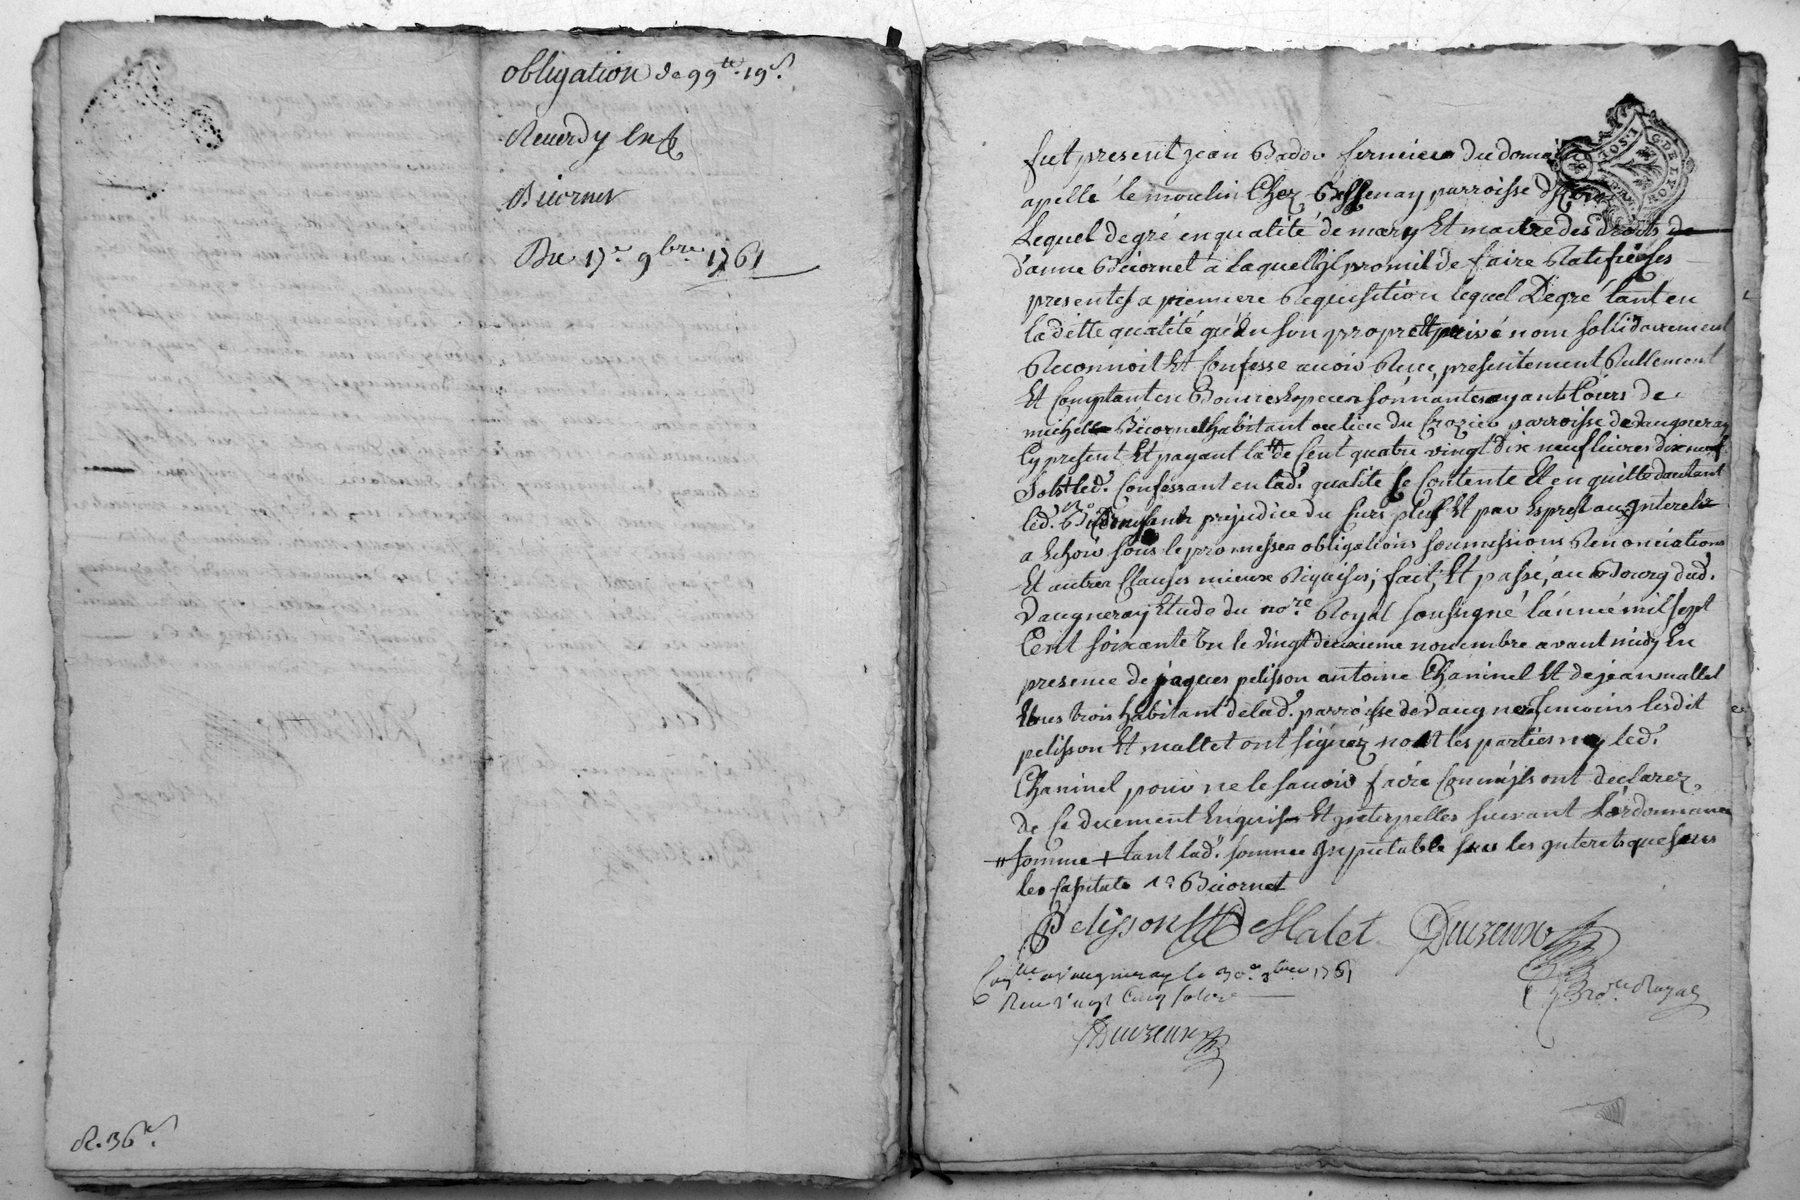 obligation de 99ᵗᵗ 19ˢ
Reuerdy
Bicornet
Du 17ᵉ 9bre 1761
R. 36
fut present jean Badou fermier du domai
apellé le moulin Chez Bessenay parroisse
Lequel de gré en qualité de mary Et maitre des droits de
d'anne Bicornet a laquelle il promit de faire Ratifier ses
presentes a premiere Requisition lequel De gré tant en
ladette qualité qu'en son propre Et privé nom sollidairement
Reconnoit Et Confesse auoir Receu presentement Rellement
Et Comptant en Bonnes Especes sonnantes ayant Cours de
michel Bicornet habitant au lieu du Crozier parroisse de vaugneray
Cy present Et payant la de Cent quatre vingt Dix neuf liures dix neuf
sols led. Confessant en lad. qualité se Contente Et en quitte d'autant
led. prejudice du surs plus Et par Exprest aux Interets
a Echoir sous le promesses obligations soumissions Renonciations
Et autres Clauses mieux Requises; fait Et passé, au Bourg dud.
Vaugneray Etude du nore. Royal soussigné l'année mil sept
Cent soixante Un le vingt deuxieme nouembre avant midy En
presence de jaques pelisson antoine Chaninel Et de jean mallet
tous trois habitant de lad. parroisse de Vaugneray Temoins lesdit
pelisson Et mallet ont signéz non les parties ny led.
Chaninel pour ne le sauoir faire Comm'ils ont declarez
de Ce duement Enquis Et Interpelles suivant L'ordonnance
somme + tant lad. somme Imputable sur les Interets que sur
les Capitals Bicornet
Pelisson Malet Duvreux
Conlle. a Vaugneray le 30e 9bre 1761
Receu vingt Cinq sols
nore Royal
Duvreux